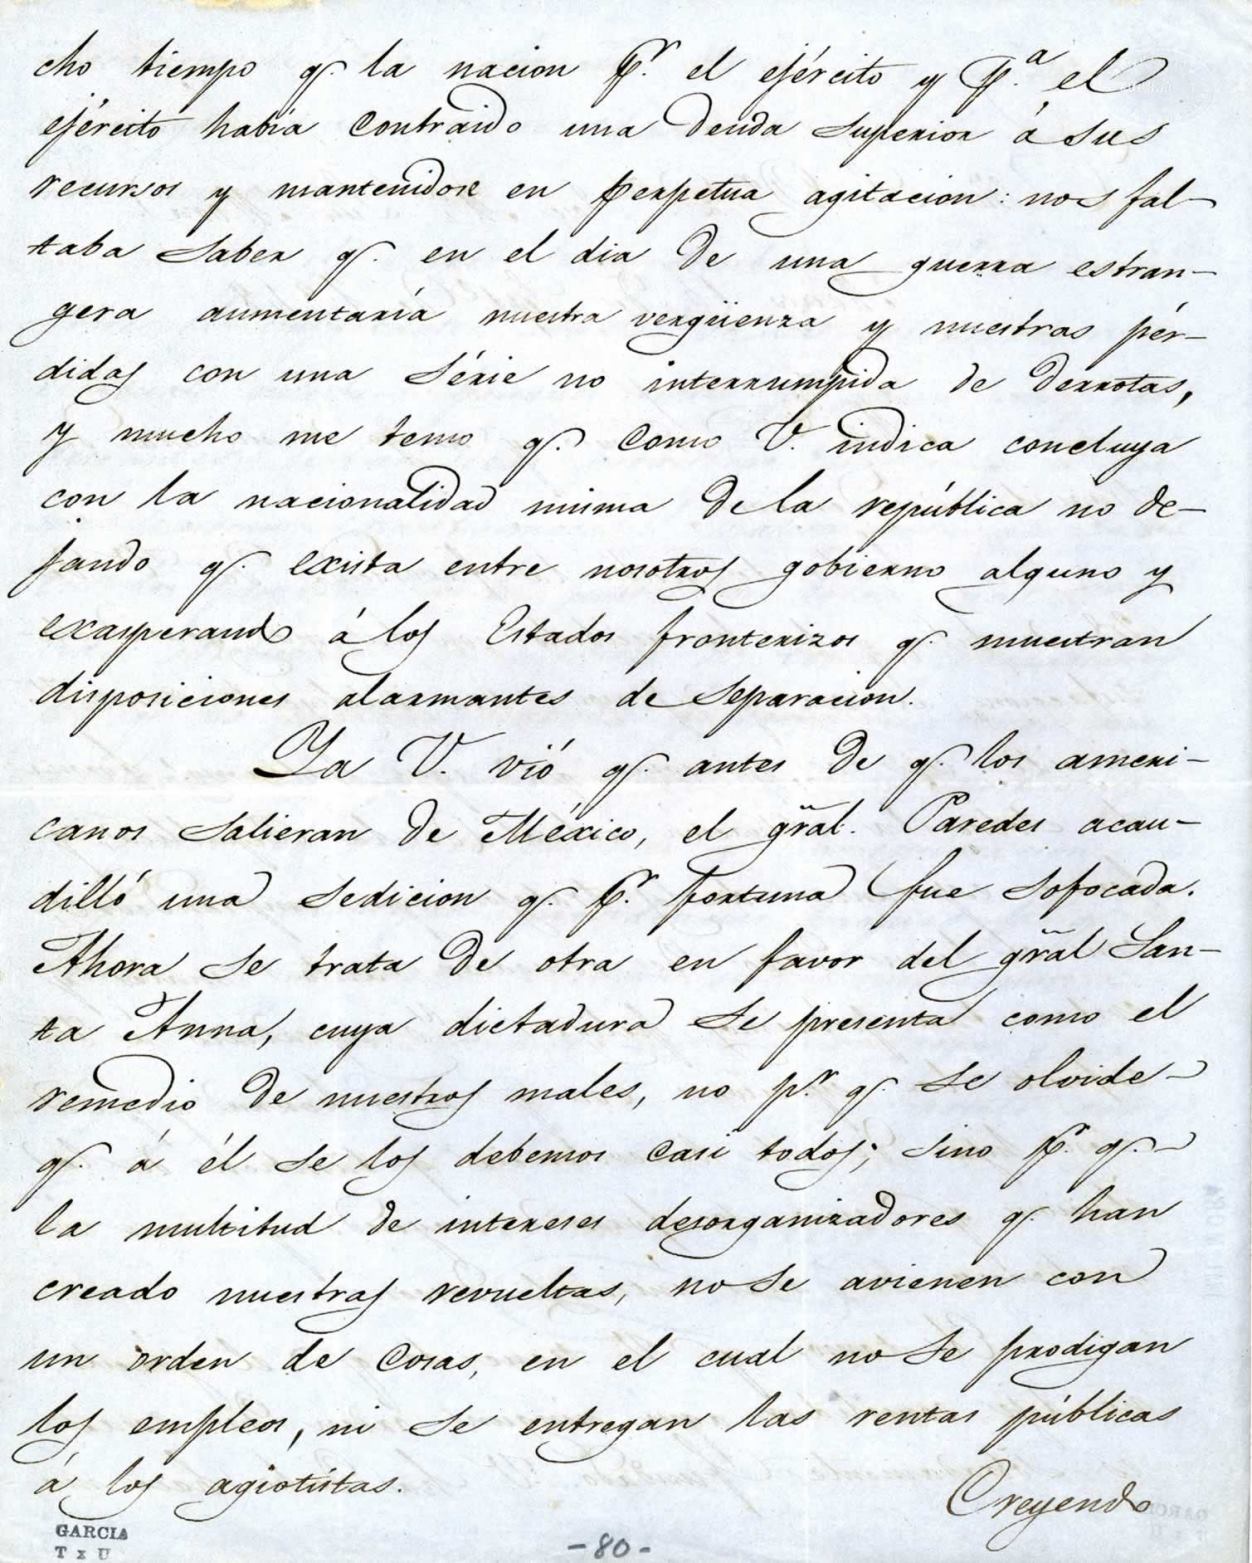 cho tiempo q. la nacion p.r el ejército y p.a el
ejército habia contraido una deuda superior á sus
recursos y mantenidose en perpetua agitacion: nos fal-
taba saber q. en el dia de una guerra estran-
gera aumentaría nuestra vergüenza y nuestras pér-
didas con una série no interrumpida de derrotas,
y mucho me temo q. como V. indica concluya
con la nacionalidad misma de la república no de-
jando q. exista entre nosotros gobierno alguno y
exasperando á los Estados fronterizos q. muestran
disposiciones alarmantes de separacion.
Ya V. vió q. antes de q. los ameri-
canos salieran de México, el gral. Paredes acau-
dilló una sedicion q. p.r fortuna fue sofocada.
Ahora se trata de otra en favor del gral San-
ta Anna, cuya dictadura se presenta como el
remedio de nuestros males, no p.r q. se olvide
q. á él se los debemos casi todos; sino p.r q.
la multitud de intereses desorganizadores q. han
creado nuestras revueltas, no se avienen con
un orden de cosas, en el cual no se prodigan
los empleos, ni se entregan las rentas públicas
á los agiotistas.
Creyendo
GARCIA
T x U
-80-